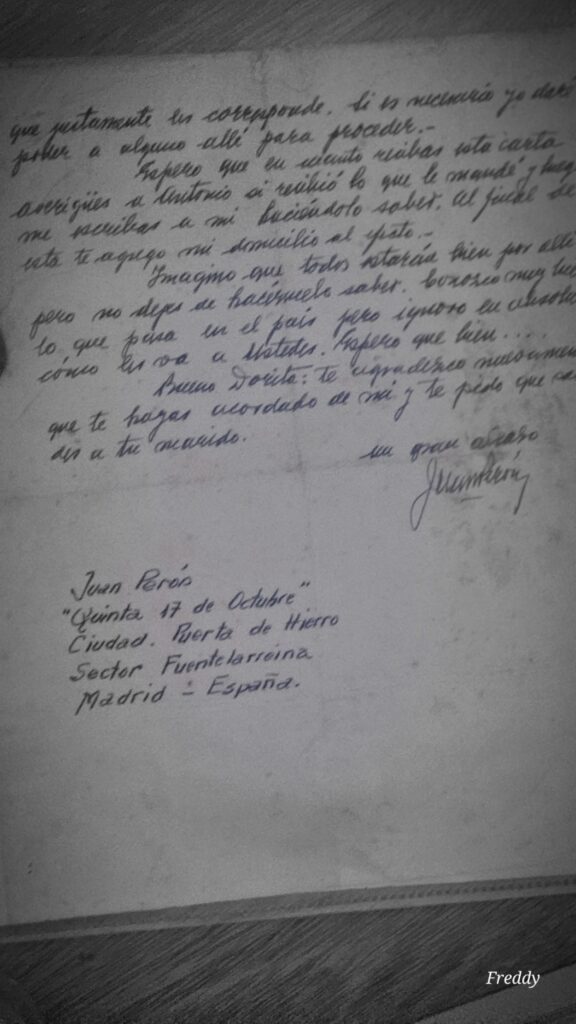 que justamente les corresponde. Si es necesario yo daré
poder a alguno allé para proceder.-
Espero que en cuanto recibas esta carta
averigües a Antonio si recibió lo que le mandé y
me escribas a mi haciéndolo saber. Al final de
esta te agrego mi domicilio al efecto.-
Imagino que todos estarán bien por allí
pero no dejes de hacérmelo saber. Conozco muy bien
lo que pasa en el país pero ignoro en
cómo les va a Ustedes. Espero que bien....
Bueno Dorita: te agradezco nuevamen
que te hayas acordado de mí y te pido que
des a tu marido.
un gran abrazo
Juan Perón
Juan Perón
"Quinta 17 de Octubre"
Ciudad. Puerta de Hierro
Sector Fuentelarreina
Madrid - España.
Freddy